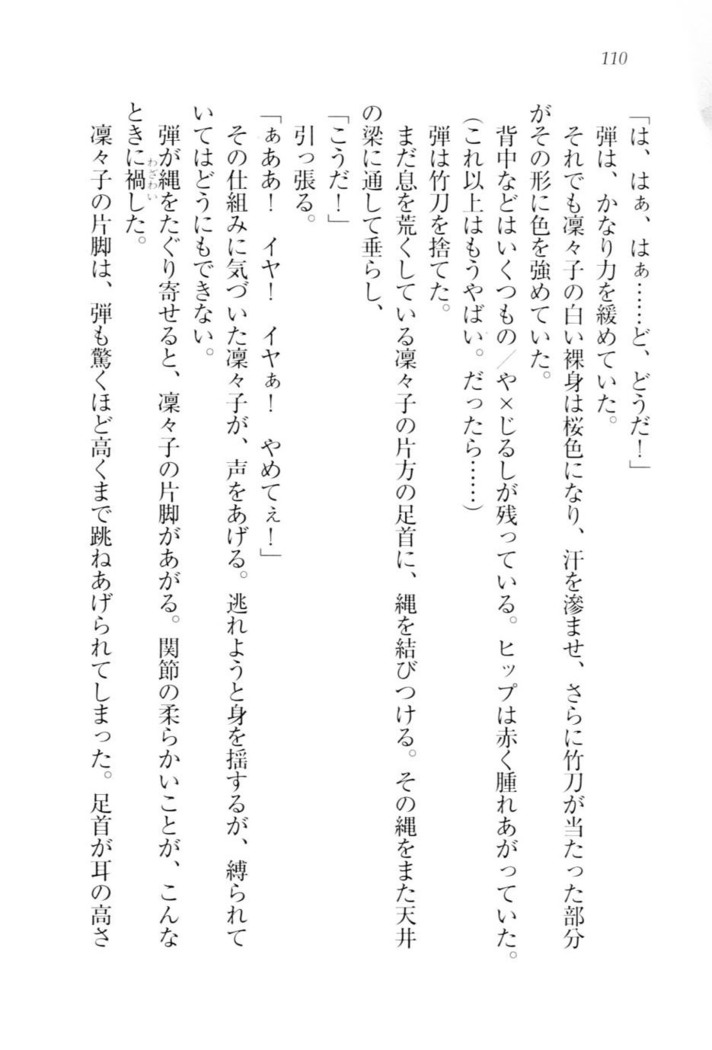 110
「は、はぁ、はぁ……ど、どうだ！」
弾は、かなり力を緩めていた。
それでも凜々子の白い裸身は桜色になり、汗を滲ませ、さらに竹刀が当たった部分
がその形に色を強めていた。
背中などはいくつもの／や×じるしが残っている。ヒップは赤く腫れあがっていた。
（これ以上はもうやばい。だったら……）
弾は竹刀を捨てた。
まだ息を荒くしている凜々子の片方の足首に、縄を結びつける。その縄をまた天井
の梁に通して垂らし、
「こうだ！」
引っ張る。
「ぁああ！　イヤ！　イヤぁ！　やめてぇ！」
その仕組みに気づいた凜々子が、声をあげる。逃れようと身を揺するが、縛られて
いてはどうにもできない。
弾が縄をたぐり寄せると、凜々子の片脚があがる。関節の柔らかいことが、こんな
ときに禍した。
わざわい
凜々子の片脚は、弾も驚くほど高くまで跳ねあげられてしまった。足首が耳の高さ